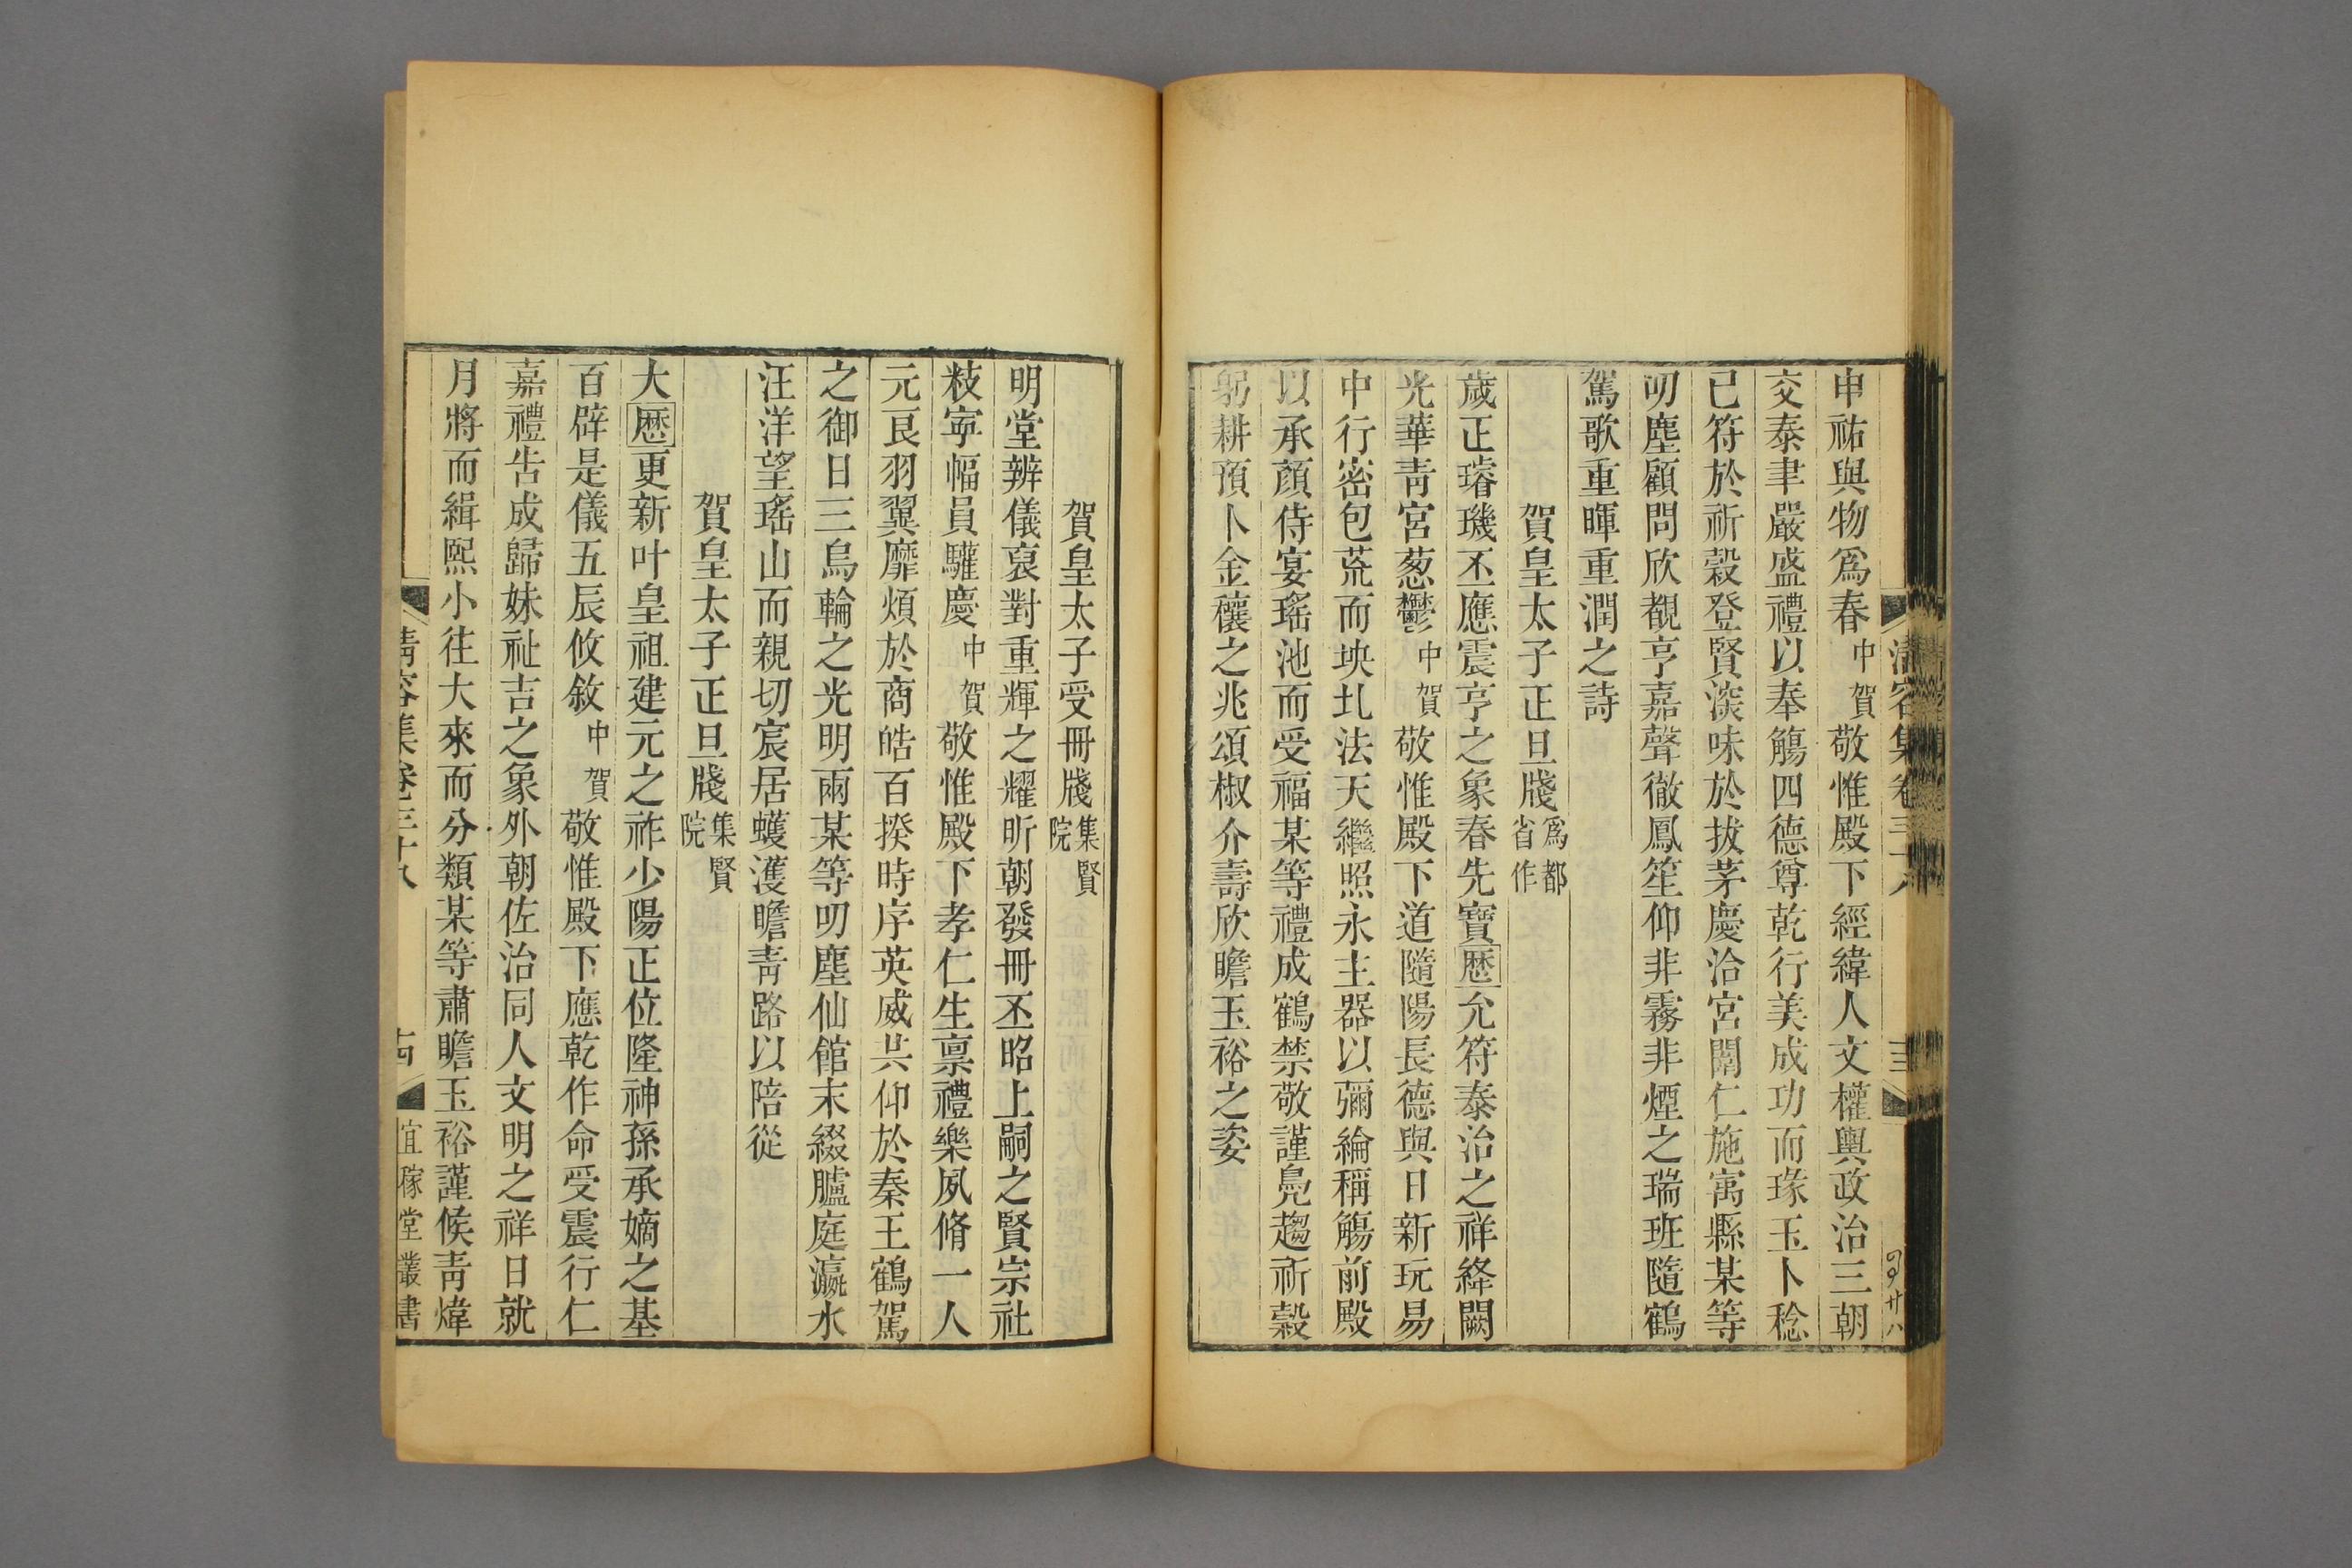 清容集卷三十八
申祐與物爲春中賀敬惟殿下經緯人文權輿政治三朝
交泰聿嚴盛禮以奉觴四德尊乾行美成功而瑑玉卜稔
已符於祈穀登賢深味於拔茅慶洽宮闈仁施寓縣某等
叨塵顧問欣覩亨嘉聲徹鳳笙仰非霧非煙之瑞班隨鶴
駕歌重暉重潤之詩
賀皇太子正旦牋爲都省作
歲正璿璣丕應震亨之象春先寶曆允符泰治之祥絳闕
光華靑宮葱鬱中賀敬惟殿下道隨陽長德與日新玩易
中行密包荒而坱圠法天繼照永主器以彌綸稱觴前殿
以承顏侍宴瑤池而受福某等禮成鶴禁敬謹鳧趨祈穀
躬耕預卜金穰之兆頌椒介壽欣瞻玉裕之姿
賀皇太子受冊牋集賢院
明堂辨儀裒對重輝之耀昕朝發冊丕昭上嗣之賢宗社
枝寧幅員驩慶中賀敬惟殿下孝仁生禀禮樂夙脩一人
元良羽翼靡煩於商皓百揆時序英威共仰於秦王鶴駕
之御日三烏輪之光明兩某等叨塵仙館末綴臚庭瀛水
汪洋望瑤山而親切宸居蠖濩瞻靑路以陪從
賀皇太子正旦牋集賢院
大曆更新叶皇祖建元之祚少陽正位隆神孫承嫡之基
百辟是儀五辰攸敘中賀敬惟殿下應乾作命受震行仁
嘉禮告成歸妹祉吉之象外朝佐治同人文明之祥日就
月將而緝熙小往大來而分類某等肅瞻玉裕謹候靑煒
清容集卷三十八 十四 宜稼堂叢書